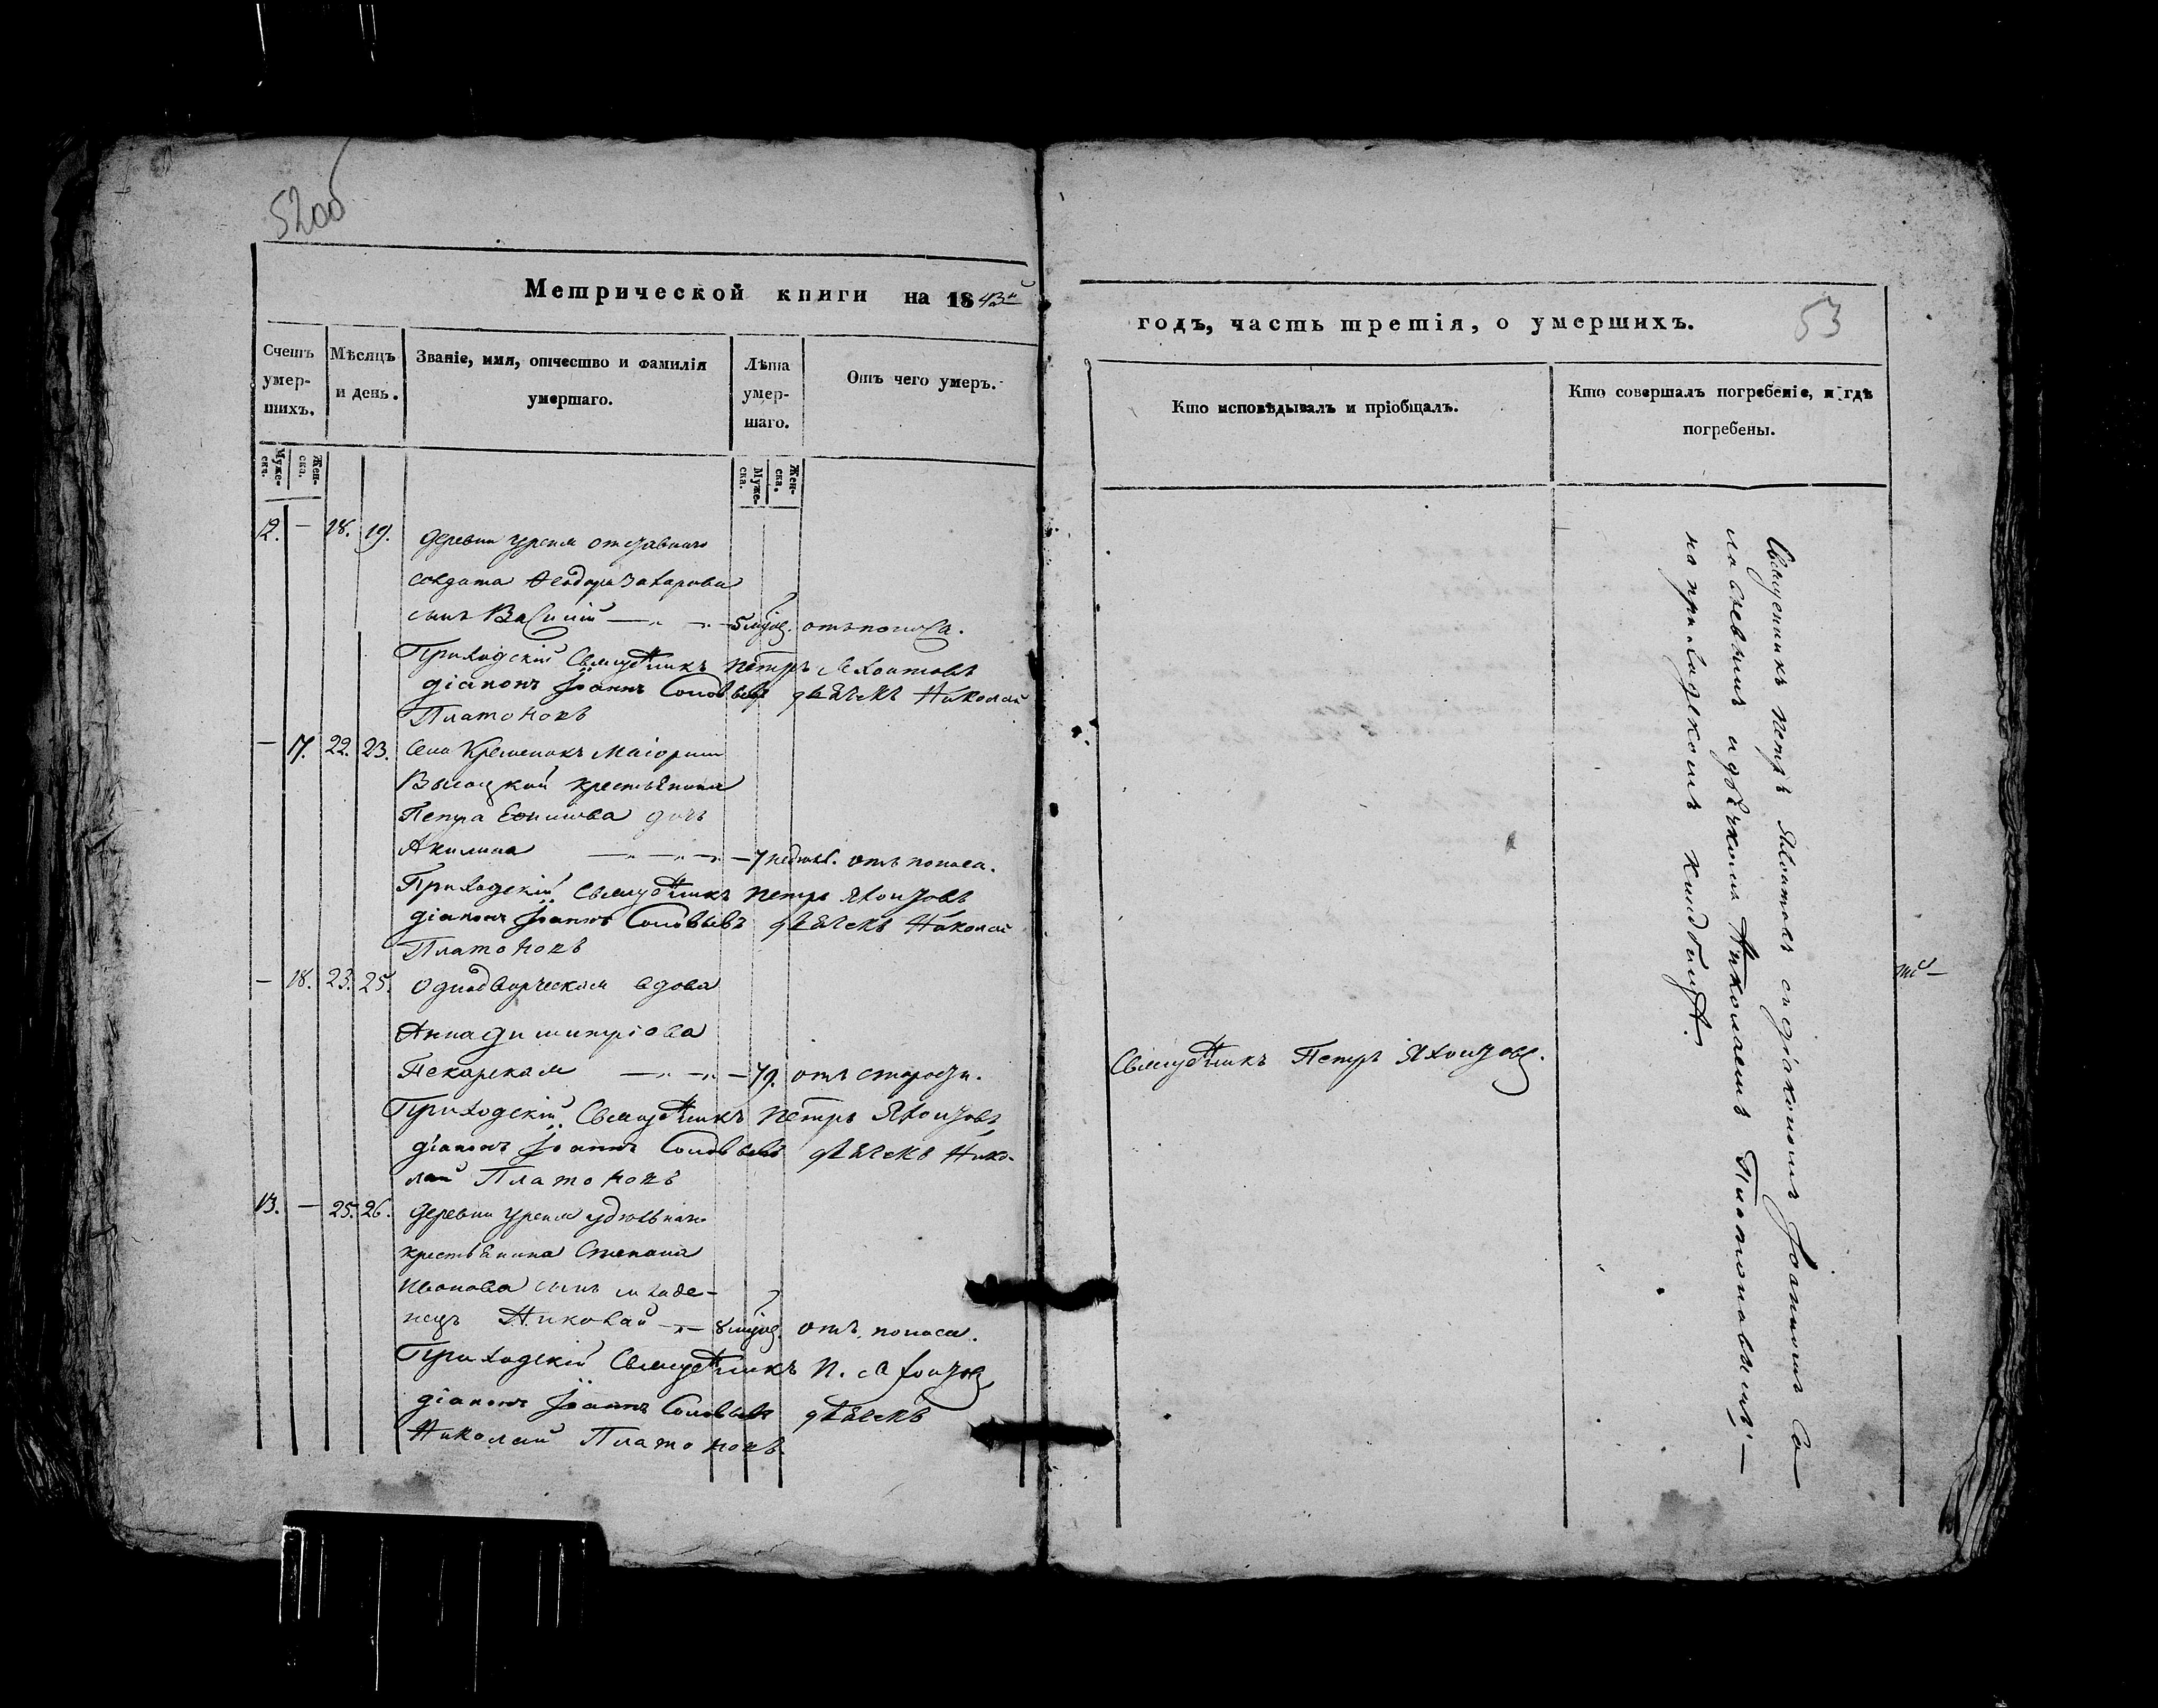 52об
Метрической книги на 1843й
Счетъ умер-шихъ.
Мѣсяцъ и день.
Званіе, имя, отчество и фамилія умершаго.
Лѣта умер-шаго.
Отъ чего умеръ.
Муже-ска.
Жен-ска.
Муже-ска.
Жен-ска.
12. — 18. 19. деревни отставнаго
солдата Ѳеодора Захарова
сынъ Василій — 5 отъ поноса.
Приходскій Священникъ Петръ
діаконъ Іоаннъ Соловьевъ дьячекъ Николай
Платоновъ
— 17. 22. 23. Села Маіорши
Высоцкой крестьянина
Петра Ефимова дочь
Акилина — 7 недѣль. отъ поноса.
Приходскій Священникъ Петръ
діаконъ Іоаннъ Соловьевъ дьячекъ Николай
Платоновъ
— 18. 23. 25. Однодворческая вдова
Анна Димитріова
Пекарская — 79. отъ старости.
Приходскій Священникъ Петръ
діаконъ Іоаннъ Соловьевъ дьячекъ Нико-
лай Платоновъ
13. — 25. 26. деревни удѣльнаго
крестьянина Степана
Иванова сынъ младе-
нецъ Николай — 8 отъ поноса.
Приходскій Священникъ П.
діаконъ Іоаннъ Соловьевъ дьячекъ
Николай Платоновъ
53
годъ, часть третія, о умершихъ.
Кто исповѣдывалъ и пріобщалъ.
Кто совершалъ погребеніе, и гдѣ погребены.
Священникъ Петръ
Священникъ Петръ съ діакономъ Іоанномъ Со
ловьевымъ и дьячкомъ Николаемъ Платоновымъ, —
на приходскомъ кладбищѣ.